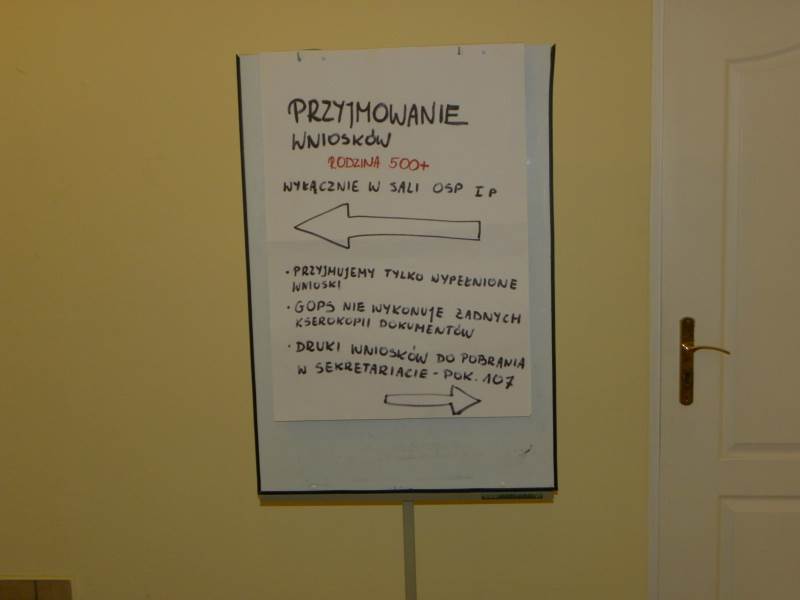 PRZYJMOWANIE
WNIOSKÓW
RODZINA 500+
WYŁĄCZNIE W SALI OSP I P
• PRZYJMUJEMY TYLKO WYPEŁNIONE
WNIOSKI
• GOPS NIE WYKONUJE ŻADNYCH
KSEROKOPII DOKUMENTÓW
• DRUKI WNIOSKÓW DO POBRANIA
W SEKRETARIACIE - POK. 107